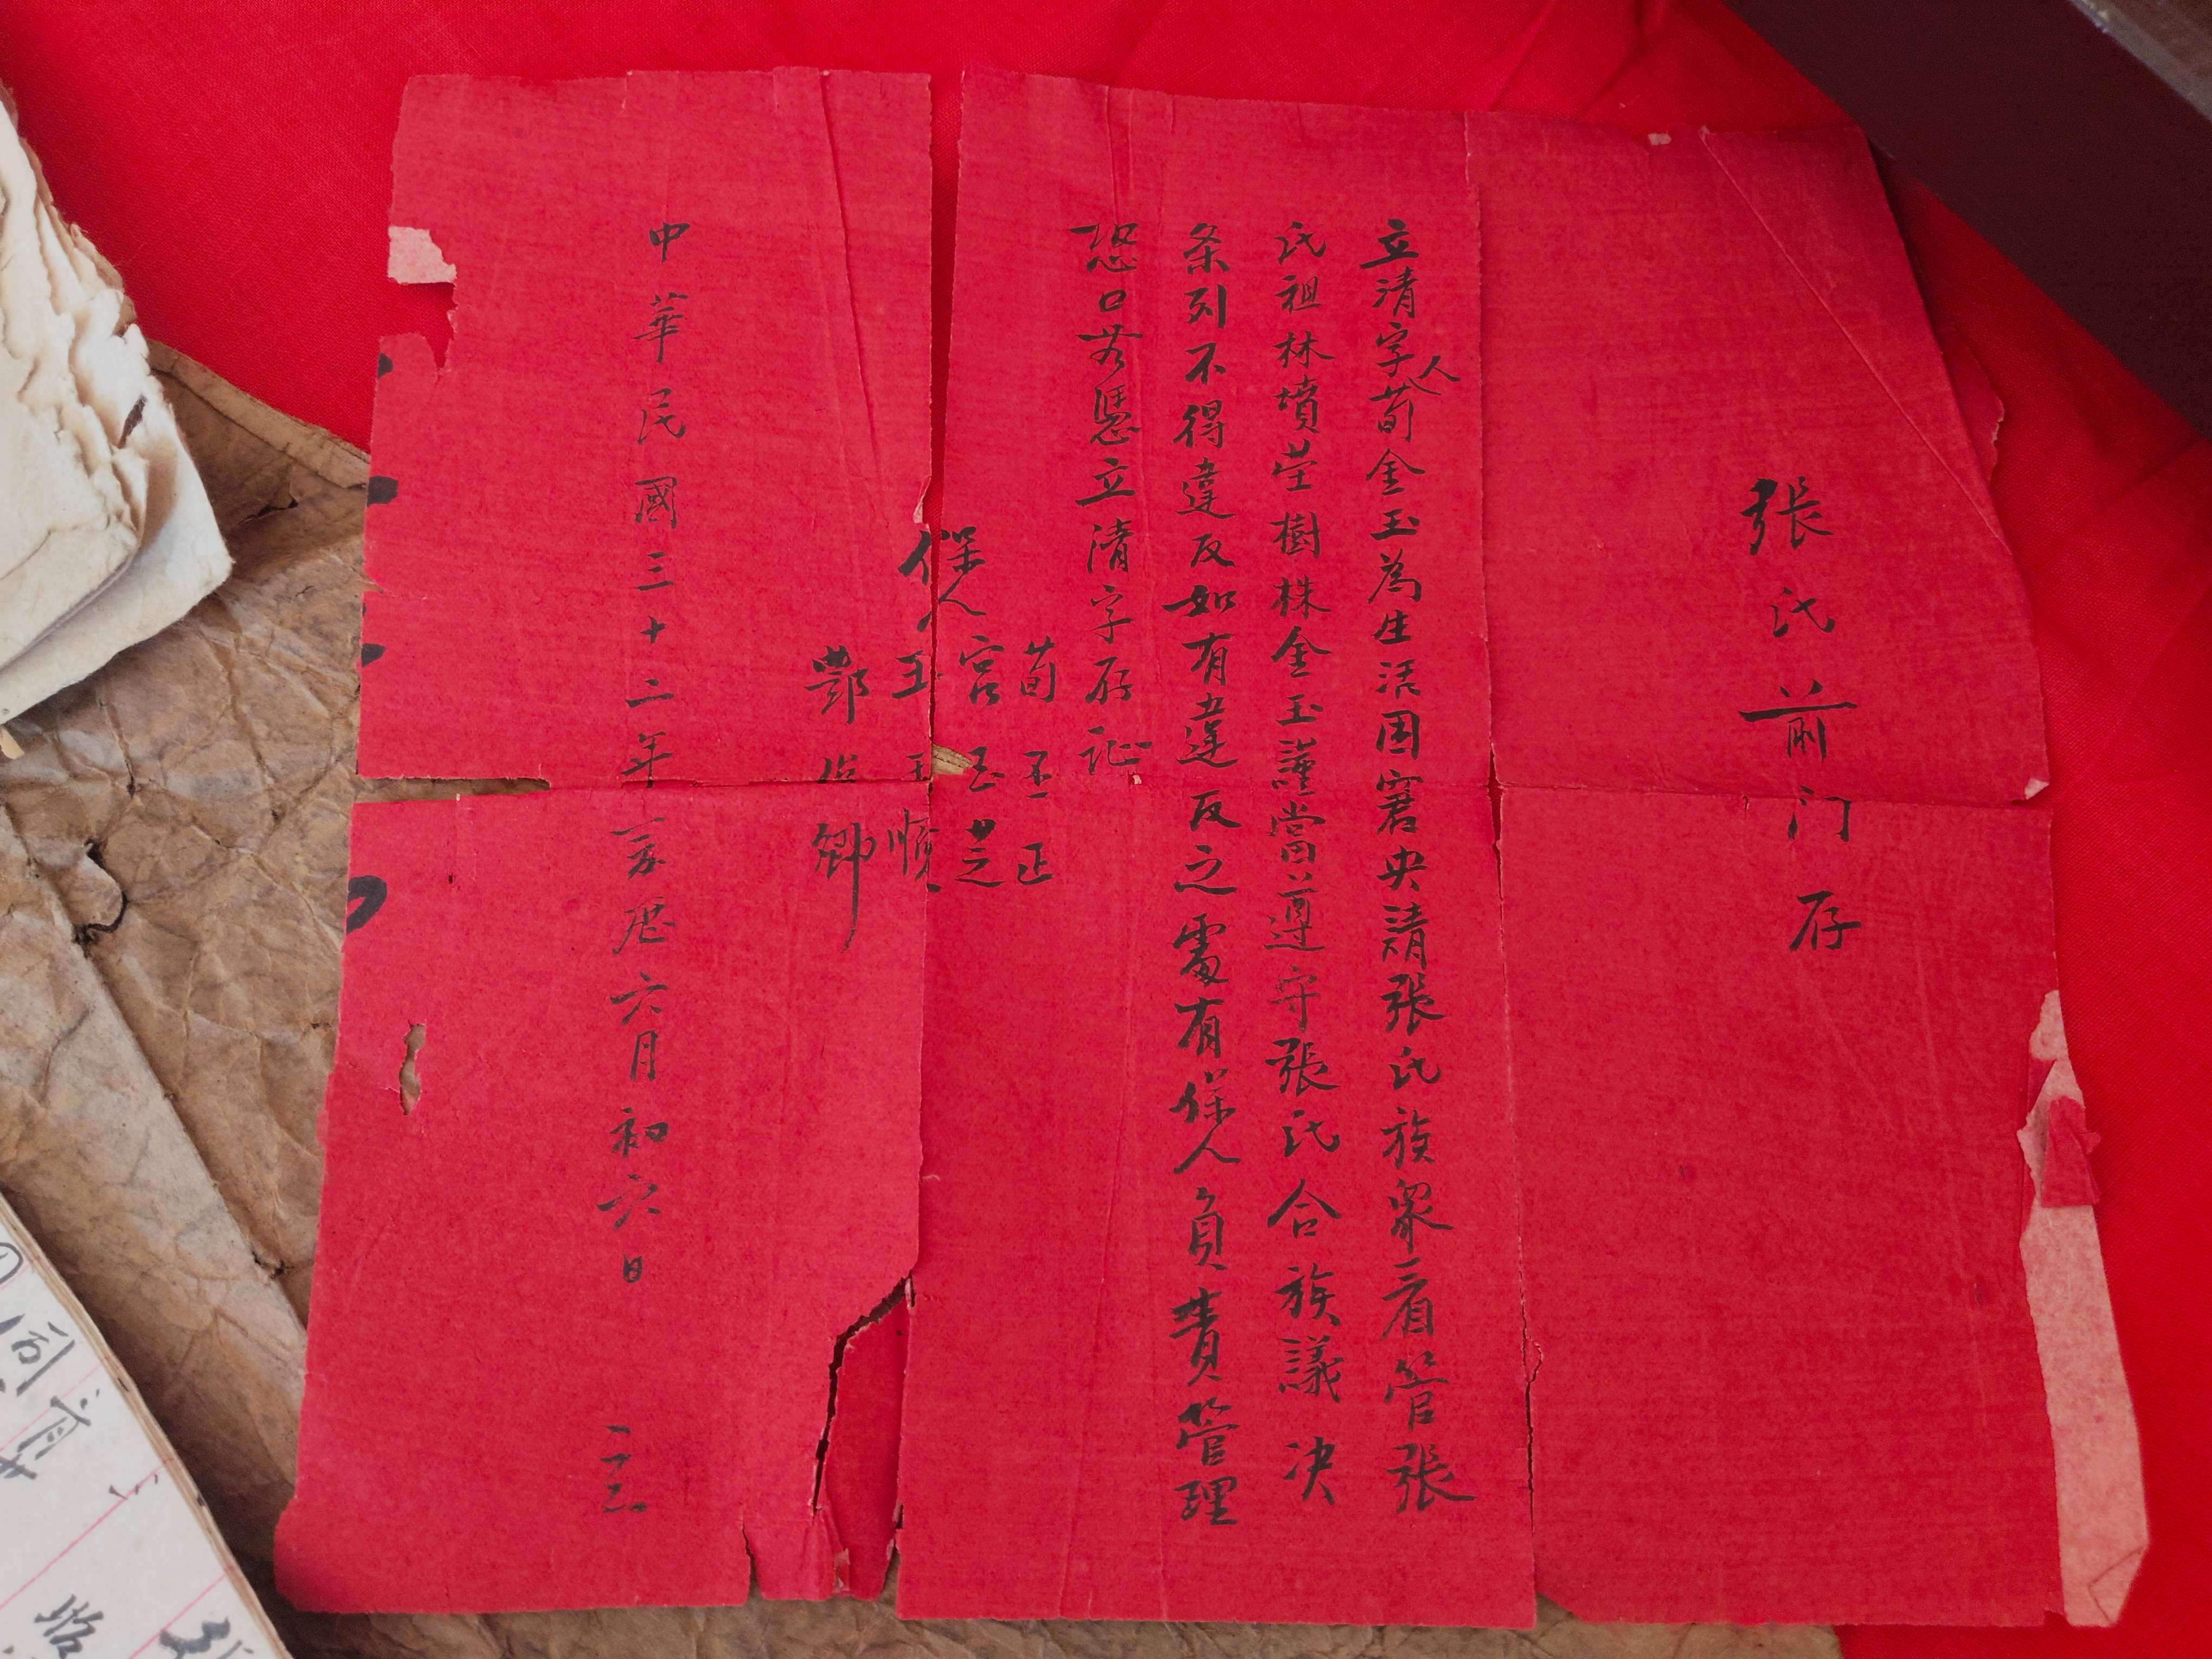 張氏前门存
立清字人荀金玉為生活困窘央請張氏族眾看管張
氏祖林墳茔樹株金玉謹當遵守張氏合族議决
条列不得違反如有違反之處有保人負責管理
恐口無憑立清字存证
保人
荀玉正
宮玉芝
王玉順
鄧 卿
中華民國三十二年夏厯六月初六日
立